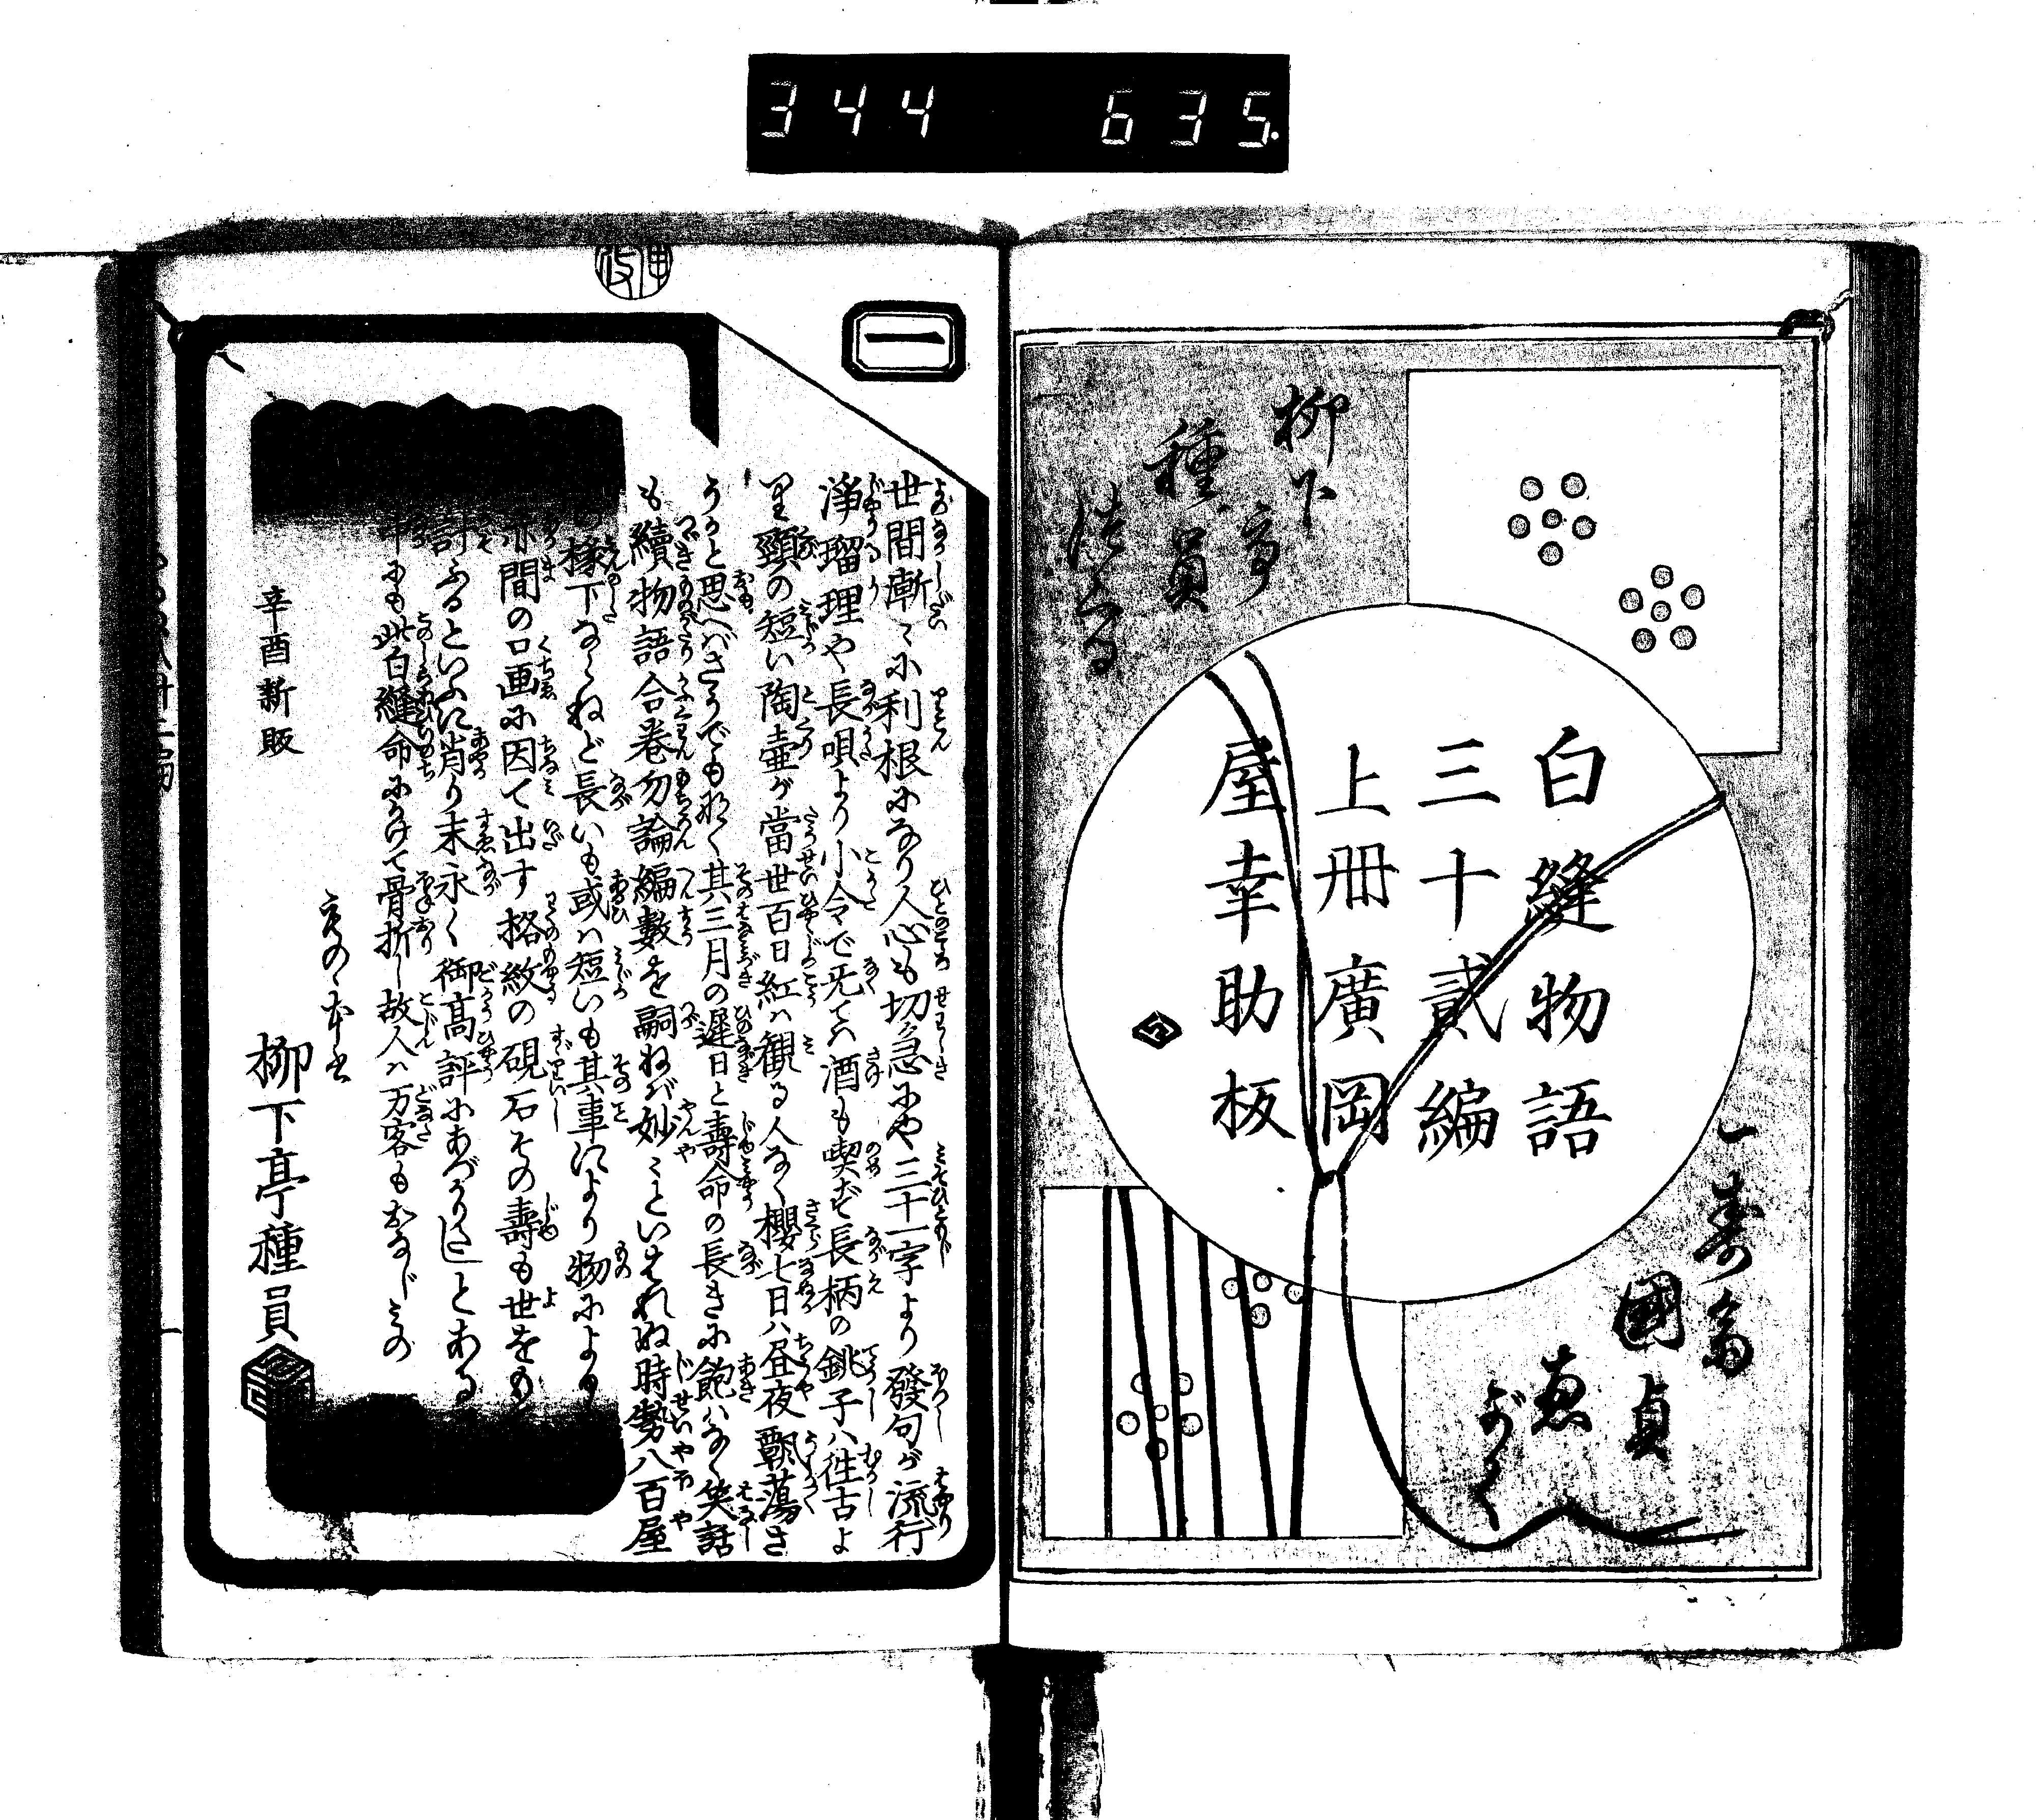 344 635.
柳下亭
種員
つゞる
白縫物語
三十貳編
上冊廣岡
屋幸助板
一壽齋
國貞
画
ゑがく
一
世間漸々に利根になり人心も切急にや三十一字より發句が流行
淨瑠理や長唄より小令で无ては酒も喫ず長柄の銚子ハ往古よ
り頸の短い陶壷が當世百日紅ハ観る人なく櫻七日ハ昼夜飄蕩さ
うかと思へバさうでも那く其三月の遲日と壽命の長きに飽ハなく笑話
も續物語合巻勿論編數を嗣ねバ妙々といはれぬ時勢八百屋
の椽下ならねど長いも或ハ短いも其事により物による
亦間の口画に因て出す格紋の硯石その壽も世をも
討ふるといふに肖り末永く御高評にあづかりたしとある
中にも此白縫命にかけて骨折し故人ハ万客もおなじミの
柳下亭種員
辛酉新販